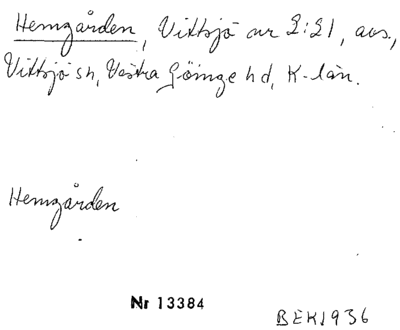 Hemgården, Vittsjö nr 2:21, avs.,
Vittsjö sn, Västra Göinge hd, K-län.
Hemgården
Nr 13384
BEK1936